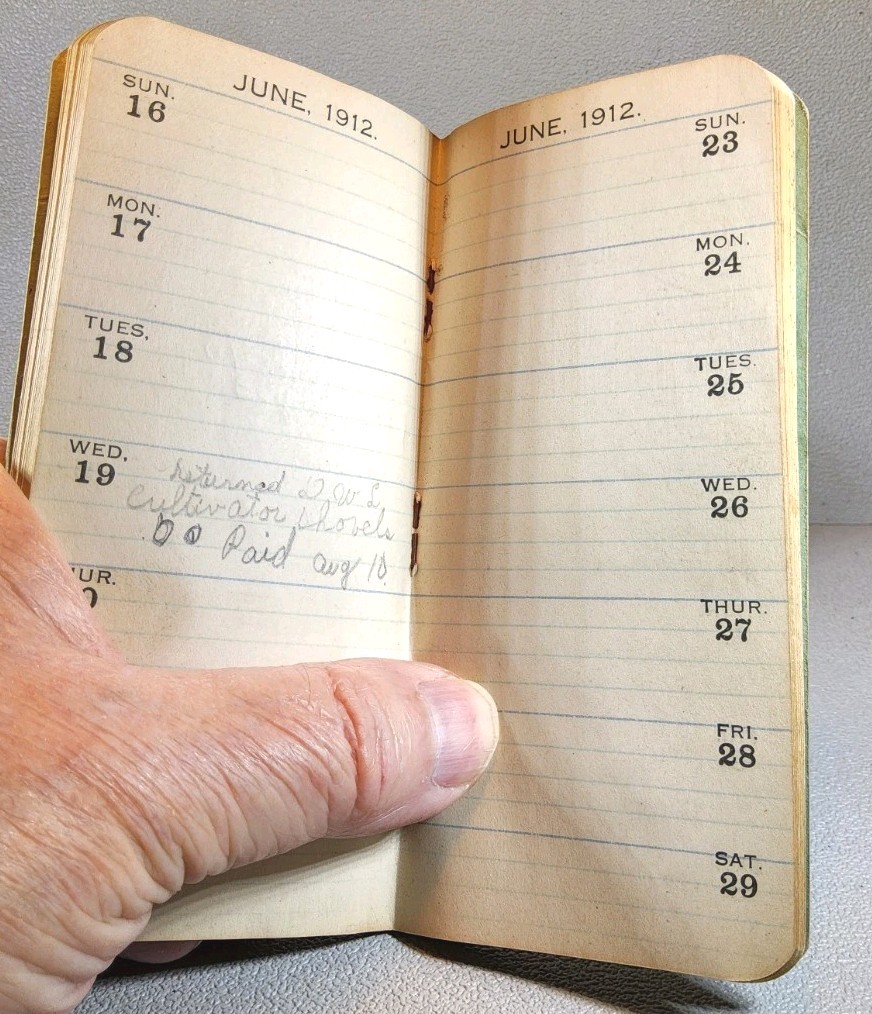 JUNE, 1912.
SUN.
16
MON.
17
TUES.
18
WED.
19
returned D W L
Cultivator shovels
Paid aug 10
UR.
JUNE, 1912.
SUN.
23
MON.
24
TUES.
25
WED.
26
THUR.
27
FRI.
28
SAT.
29